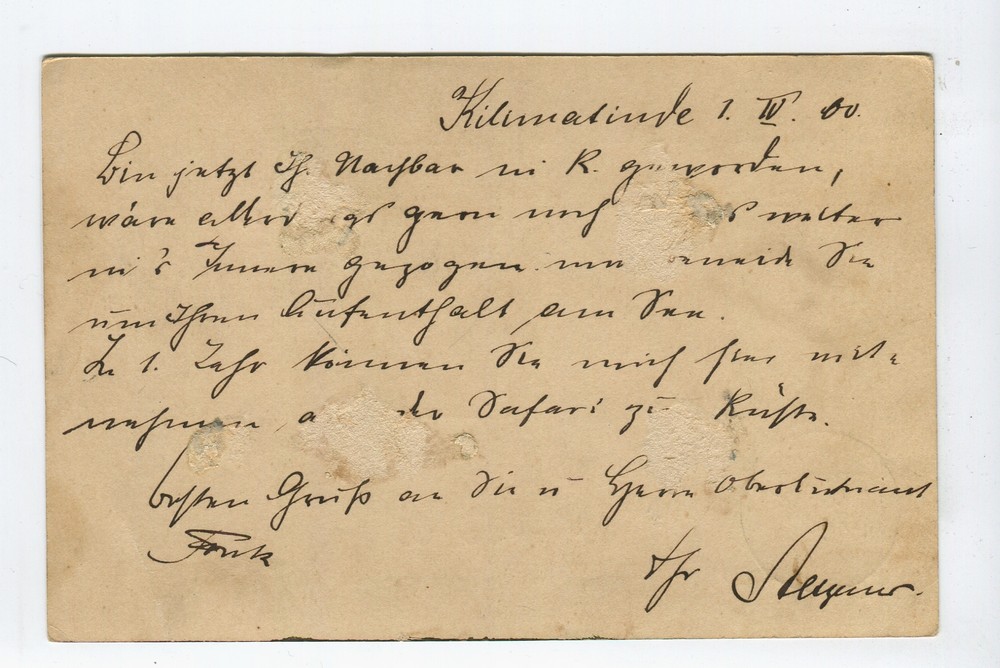 Kilimatinde 1. IV. 00.
Bin jetzt Ih. Nachbar in K. geworden,
wäre allerd gs gern noch s weiter
in's Innere gezogen un beneide Sie
um Ihren Aufenthalt am See.
In 1. Jahr können Sie mich hier mit-
nehmen a der Safari zu Küste.
besten Gruß an Sie u Herrn Oberleutnant
Ihr